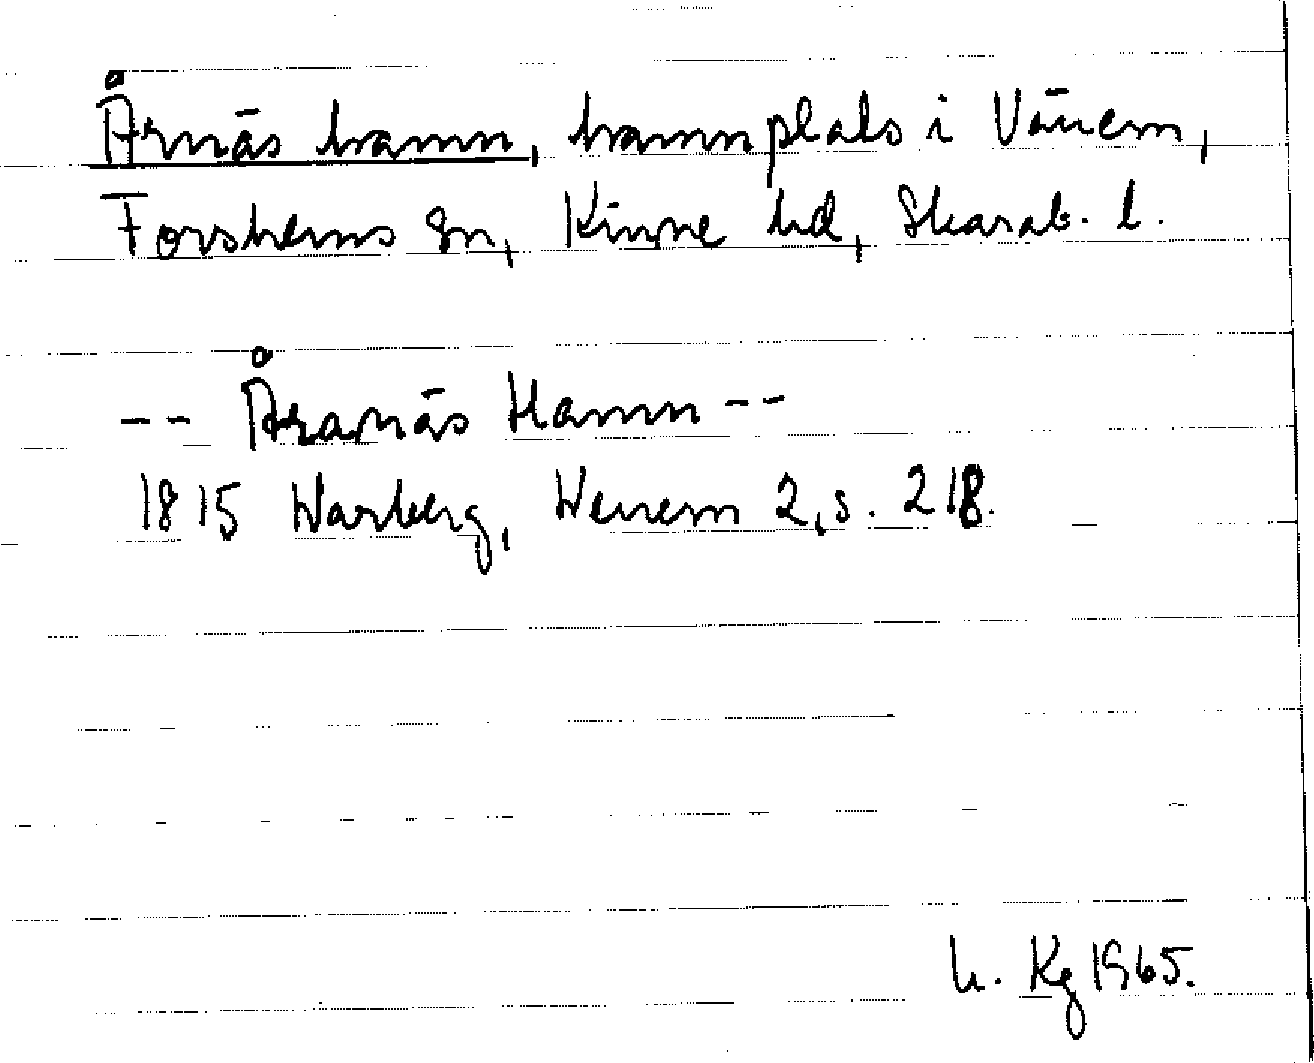 Årnäs hamn, hamnplats i Vänern,
Forshems sn, Kinne hd, Skarab. l.
-- Åranäs Hamn --
1815 Warberg, Wenern 2, s. 218.
h. Kg 1965.